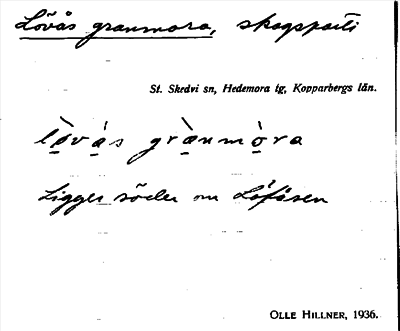 Lövås granmora, skogsparti
St. Skedvi sn, Hedemora tg, Kopparbergs län.
lò̱vá̱s grà̱nmò̱ra
Ligger söder om Löfåsen
OLLE HILLNER, 1936.